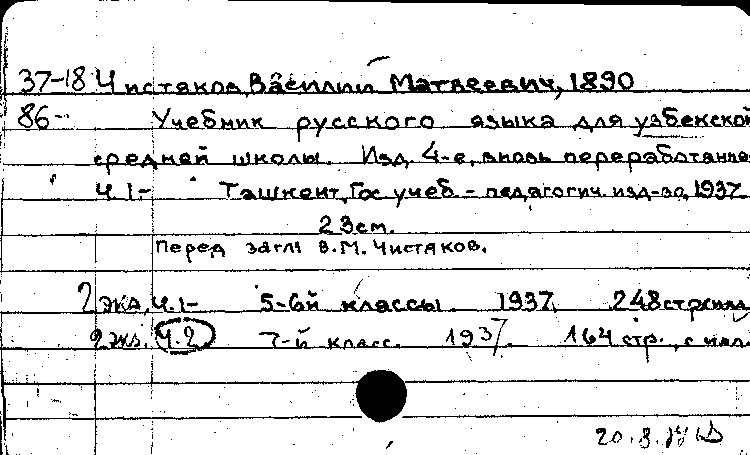 37-18 Чистяков, Василий Матвеевич, 1890
86- Учебник русского языка для узбекской
средней школы. Изд. 4-е, вновь переработанное
Ч.1- Ташкент, Гос. учеб.-педагогич. изд-во, 1937.
23см.
Перед загл: В.М. Чистяков.
2 экз. Ч.1- 5-6й классы. 1937. 248 стр
2 экз. Ч.2 7-й класс. 1937. 164 стр., с илл.
20.8.